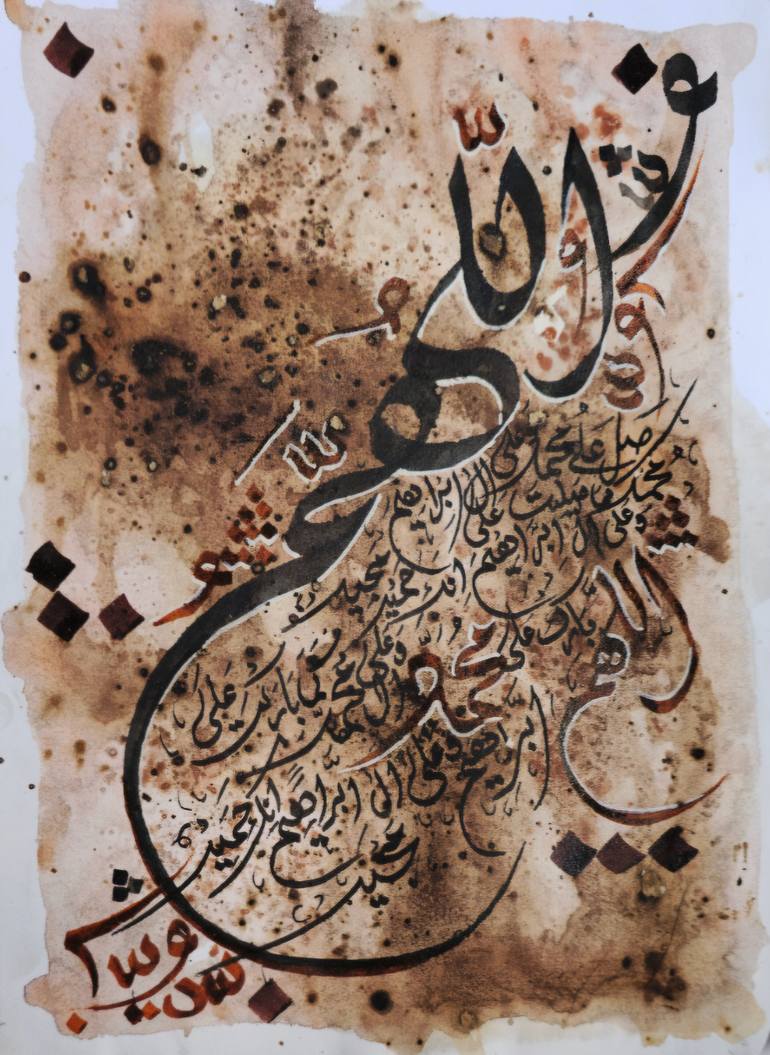 اللهم
صل على محمد وعلى ال
محمد كما صليت على ابراهيم
وعلى ال ابراهيم انك حميد مجيد
اللهم
بارك على محمد وعلى ال محمد
كما باركت على
ابراهيم وعلى ال ابراهيم انك حميد
مجيد